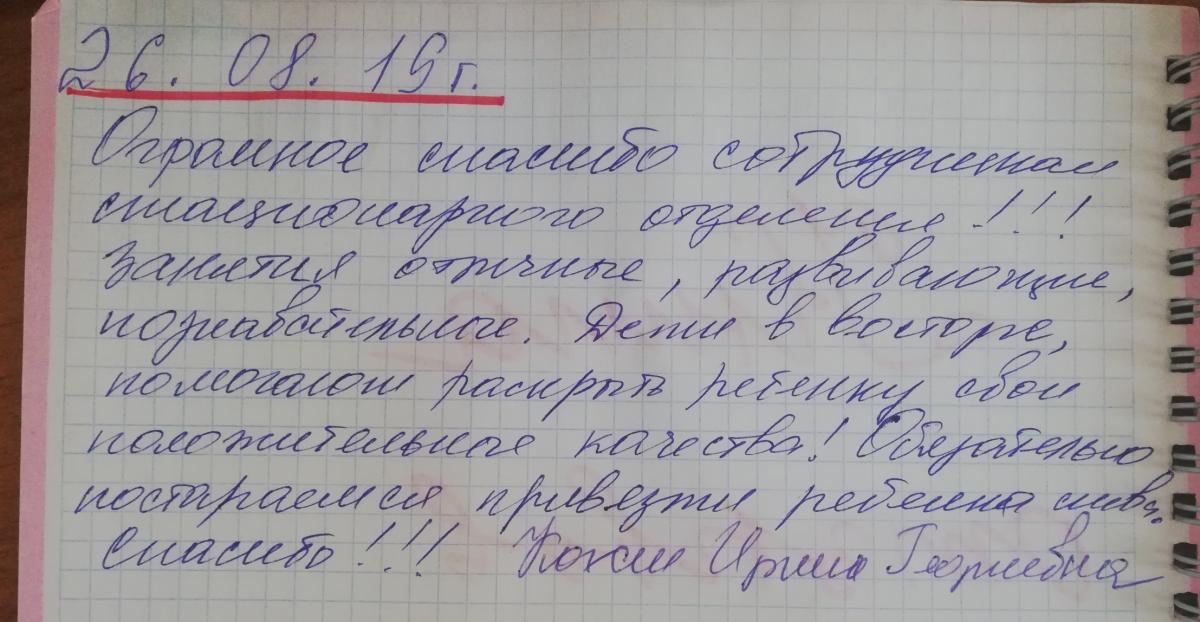 26. 08. 19 г.
Огромное спасибо сотрудникам
стационарного отделения!!!
Занятия отличные, развивающие,
познавательные. Дети в восторге,
помогают раскрыть ребенку свои
положительные качества! Обязательно
постараемся привезти ребенка
Спасибо!!! Ирина Георгиевна